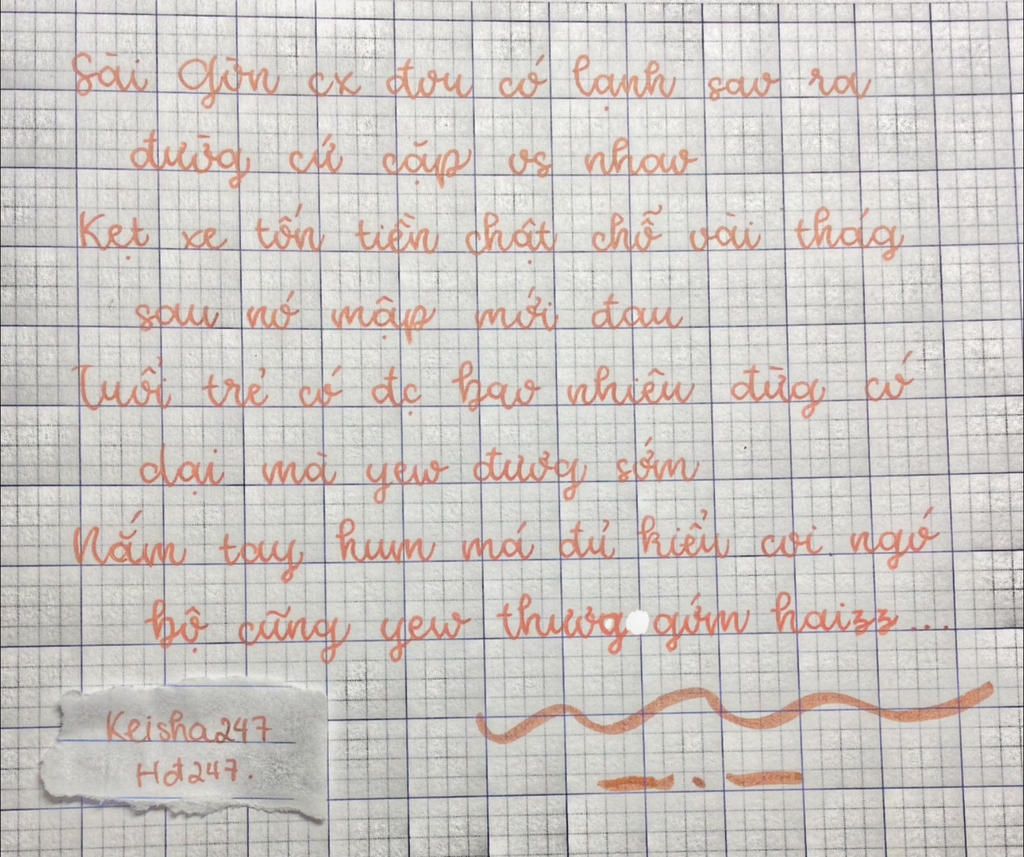 Sài Gòn cx đou có lạnh sao ra
đườg cứ cặp vs nhao
Kẹt xe tốn tiền chật chỗ vài thág
sau nó mập mới đau
Tuổi trẻ có đc bao nhiêu đừg có
dại mà yew đươg sớm
Nắm tay hun má đủ kiểu coi ngó
bộ cũng yew thươg gớm haizz...
Keisha247
Hd247.